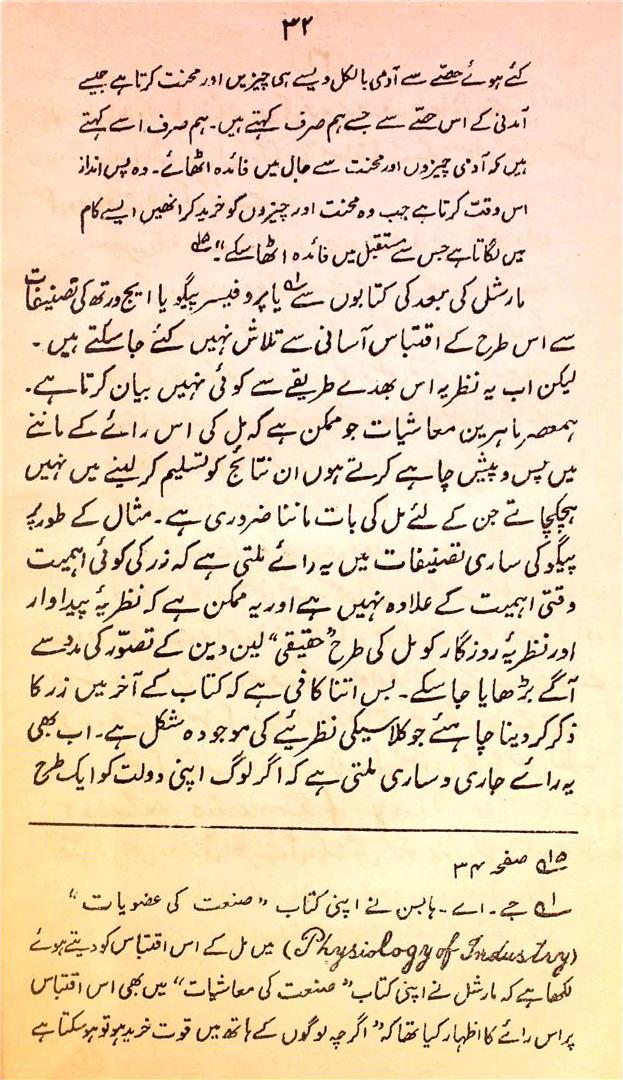 ۳۲
کئے ہوئے حصّے سے آدمی بالکل ویسے ہی چیزیں اور محنت کرتا ہے جیسے
آمدنی کے اس حصّے سے جسے ہم صرف کہتے ہیں۔ ہم صرف اسے کہتے
ہیں کہ آدمی چیزوں اور محنت سے حال میں فائدہ اٹھائے۔ وہ پس انداز
اس وقت کرتا ہے جب وہ محنت اور چیزوں کو خرید کر انھیں ایسے کام
میں لگاتا ہے جس سے مستقبل میں فائدہ اٹھا سکے"۔
مارشل کی بعد کی کتابوں سے یا پروفیسر پیگو یا ایج ورتھ کی تصنیفات
سے اس طرح کے اقتباس آسانی سے تلاش نہیں کئے جا سکتے ہیں۔
لیکن اب یہ نظریہ اس بھدے طریقے سے کوئی نہیں بیان کرتا ہے۔
ہمعصر ماہرین معاشیات جو ممکن ہے کہ مل کی اس رائے کے ماننے
میں پس و پیش چاہے کرتے ہوں ان نتائج کو تسلیم کر لینے میں نہیں
ہچکچاتے جن کے لئے مل کی بات ماننا ضروری ہے۔ مثال کے طور پر
پیگو کی ساری تصنیفات میں یہ رائے ملتی ہے کہ زر کی کوئی اہمیت
وقتی اہمیت کے علاوہ نہیں ہے اور یہ ممکن ہے کہ نظریۂ پیداوار
اور نظریۂ روزگار کو مل کی طرح "حقیقی" لین دین کے تصوّر کی مدد سے
آگے بڑھایا جا سکے۔ بس اتنا کافی ہے کہ کتاب کے آخر میں زر کا
ذکر کر دینا چاہئے جو کلاسیکی نظریئے کی موجودہ شکل ہے۔ اب بھی
یہ رائے جاری و ساری ملتی ہے کہ اگر لوگ اپنی دولت کو ایک طرح
صفحہ ۳۴
جے۔ اے۔ ہابسن نے اپنی کتاب "صنعت کی عضویات"
(Physiology of Industry) میں مل کے اس اقتباس کو دیتے ہوئے
لکھا ہے کہ مارشل نے اپنی کتاب "صنعت کی معاشیات" میں بھی اس اقتباس
پر اس رائے کا اظہار کیا تھا کہ "اگرچہ لوگوں کے ہاتھ میں قوت خرید ہو تو ہو سکتا ہے